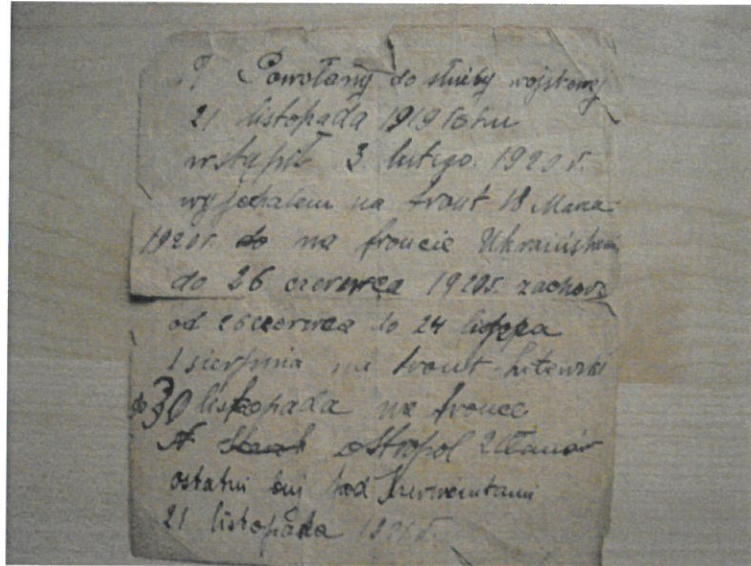 Powołany do służby wojskowej
21 listopada 1919 roku
wstąpił 3 lutego 1920 r.
wyjechałem na front 18 Marca
1920 r. do na froncie Ukraińskim
do 26 czerwca 1920 r. zachor
od 26 czerwca do 24 lipca
1 sierpnia na front Litewski
do 30 listopada na froncie
ostatni pod
21 listopada